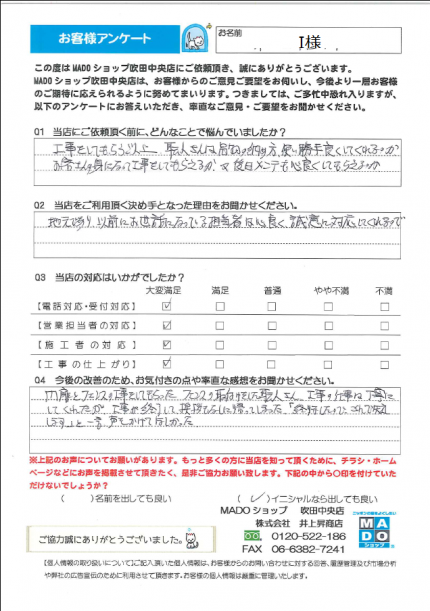 お客様アンケート
お名前
I様
この度はMADOショップ吹田中央店にご依頼頂き、誠にありがとうございます。
MADOショップ吹田中央店は、お客様からのご意見ご要望をお伺いし、今後より一層お客様
のご期待に応えられるように努めてまいります。つきましては、ご多忙中恐れ入りますが、
以下のアンケートにお答えいただき、率直なご意見・ご要望をお聞かせください。
Q1 当店にご依頼頂く前に、どんなことで悩んでいましたか?
工事をしてもらう以上
使い勝手良くしてくれるのか
お客さんの身になって工事をしてもらえるか 又後日メンテも心良くしてもらえるか
Q2 当店をご利用頂く決め手となった理由をお聞かせください。
地元であり 以前にお世話になっている担当者は心良く、誠意に対応してくれるので
Q3 当店の対応はいかがでしたか?
大変満足 満足 普通 やや不満 不満
【電話対応・受付対応】
【営業担当者の対応】
【施工者の対応】
【工事の仕上がり】
Q4 今後の改善のため、お気付きの点や率直な感想をお聞かせください。
門扉とフェンスの工事をしてもらった
工事の仕事は丁寧に
してくれたが 工事が終了して 挨拶もなしに帰ってしまった
」と一言 声をかけてほしかった
※上記のお声についてお願いがあります。もっと多くの方に当店を知って頂くために、チラシ・ホーム
ページなどにお声を掲載させて頂きたく、是非ご協力お願い致します。下記の中から〇印を付けていた
だけないでしょうか?
( )名前を出しても良い (✓)イニシャルなら出しても良い
MADOショップ 吹田中央店
株式会社 井上昇商店
0120-522-186
FAX 06-6382-7241
MADO
ショップ
ご協力誠にありがとうございました。
【個人情報の取り扱いについて】ご記入頂いた個人情報は、お客様からのお問い合わせに対する回答、履歴管理及び市場分析
や弊社の広告宣伝のために利用させて頂きます。お客様の個人情報は厳重に管理いたします。